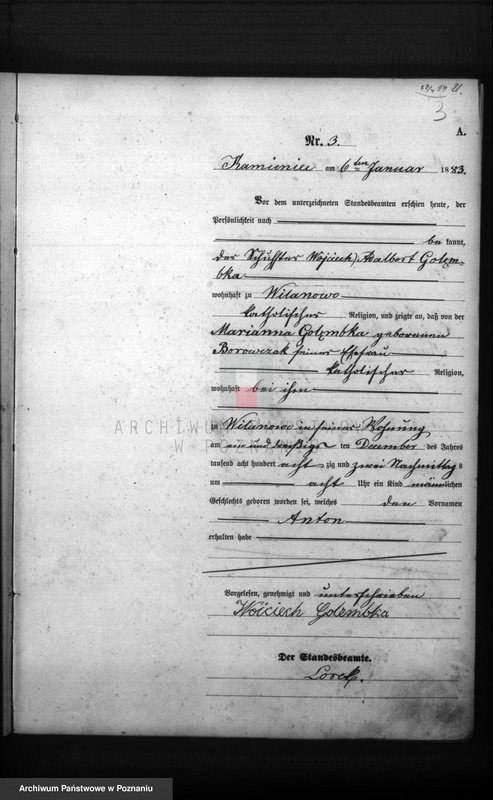 3
A.
Nr. 3.
Kamieniec am 6ten Januar 1883.
Vor dem unterzeichneten Standesbeamten erschien heute, der
Persönlichkeit nach
be kannt,
der Schuster Wojciech, Adalbert Golem-
bka
wohnhaft zu Wilanowo
katholischer Religion, und zeigte an, daß von der
Marianna Golembka geborenen
Borowczak seiner Ehefrau
katholischer Religion,
wohnhaft bei ihm
ARCHIWUM PAŃSTWOWE
W POZNANIU
zu Wilanowo in seiner Wohnung
am ein und dreißigsten December des Jahres
tausend acht hundert acht zig und zwei Nachmittags
um acht Uhr ein Kind männlichen
Geschlechts geboren worden sei, welches den Vornamen
Anton
erhalten habe
Vorgelesen, genehmigt und unterschrieben
Wojciech Golembka
Der Standesbeamte.
Archiwum Państwowe w Poznaniu